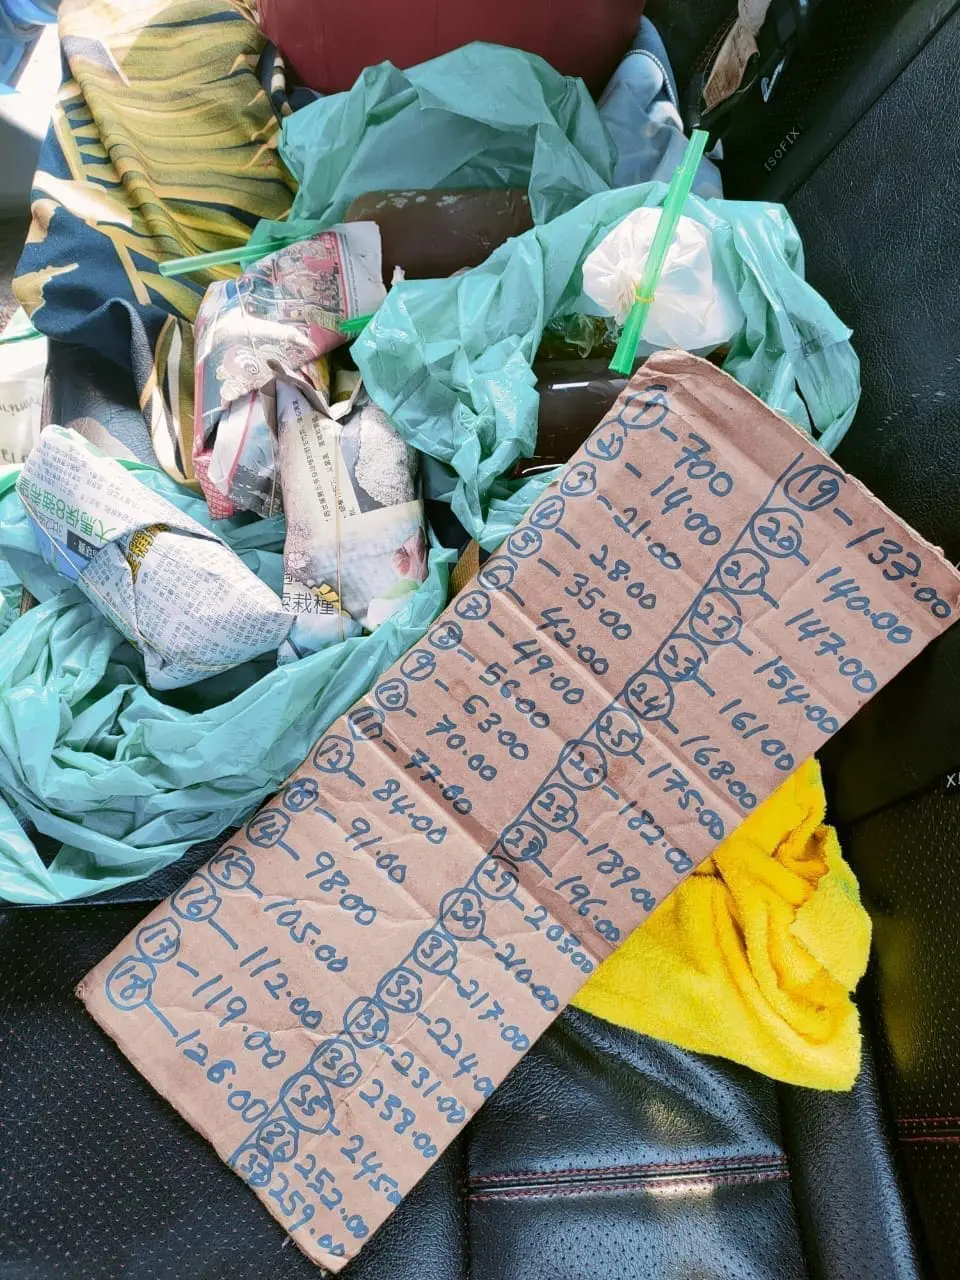 ISOFIX
大馬保8強希望
栽種
1 - 700
2 - 14.00
3 - 21.00
4 - 28.00
5 - 35.00
6 - 42.00
7 - 49.00
8 - 56.00
9 - 63.00
10 - 70.00
11 - 77.00
12 - 84.00
13 - 91.00
14 - 98.00
15 - 105.00
16 - 112.00
17 - 119.00
18 - 126.00
19 - 133.00
20 - 140.00
21 - 147.00
22 - 154.00
23 - 161 00
24 - 168.00
25 - 175.00
26 - 182.00
27 - 189.00
28 - 196.00
29 - 20300
30 - 210.00
31 - 217.00
32 - 224.00
33 - 231.00
34 - 238.00
35 - 245.00
36 - 252.00
37 - 259.00